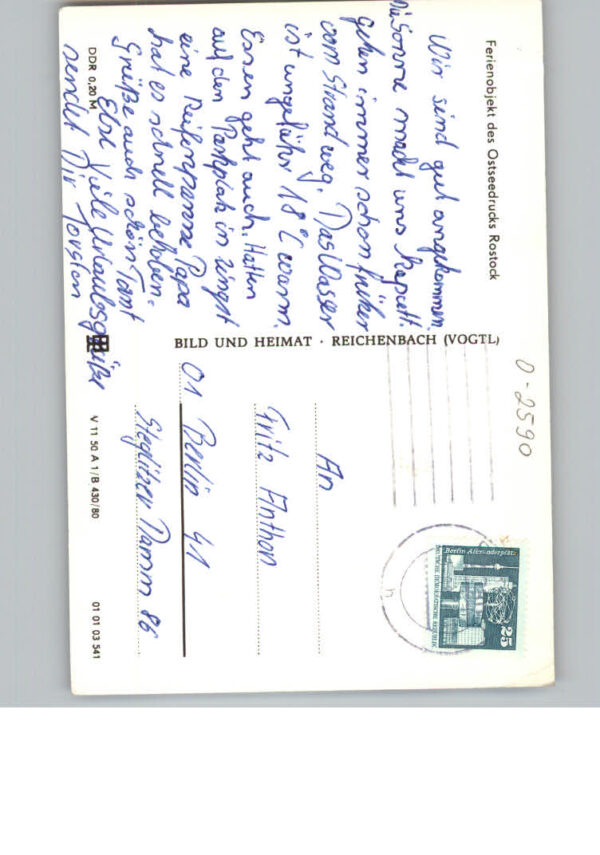 Ferienobjekt des Ostseedrucks Rostock
Wir sind gut angekommen.
Die Sonne macht uns kaputt.
gehen immer schon früher
vom Strand weg. Das Wasser
ist ungefähr 18°C warm.
Essen geht auch. Hatten
auf dem Parkplatz in Zingst
eine Reifenpanne, Papa
hat es schnell behoben.
Grüße auch schön Tant
Else Viele Urlaubsgrüße
sendet Dir Torsten
DDR 0,20 M
BILD UND HEIMAT · REICHENBACH (VOGTL)
V 11 50 A 1/B 430/80
01 01 03 541
0-2590
An
Fritz Anthon
01 Berlin 41
Steglitzer Damm 86
Berlin, Alexanderplatz
DEUTSCHE DEMOKRATISCHE REPUBLIK
25